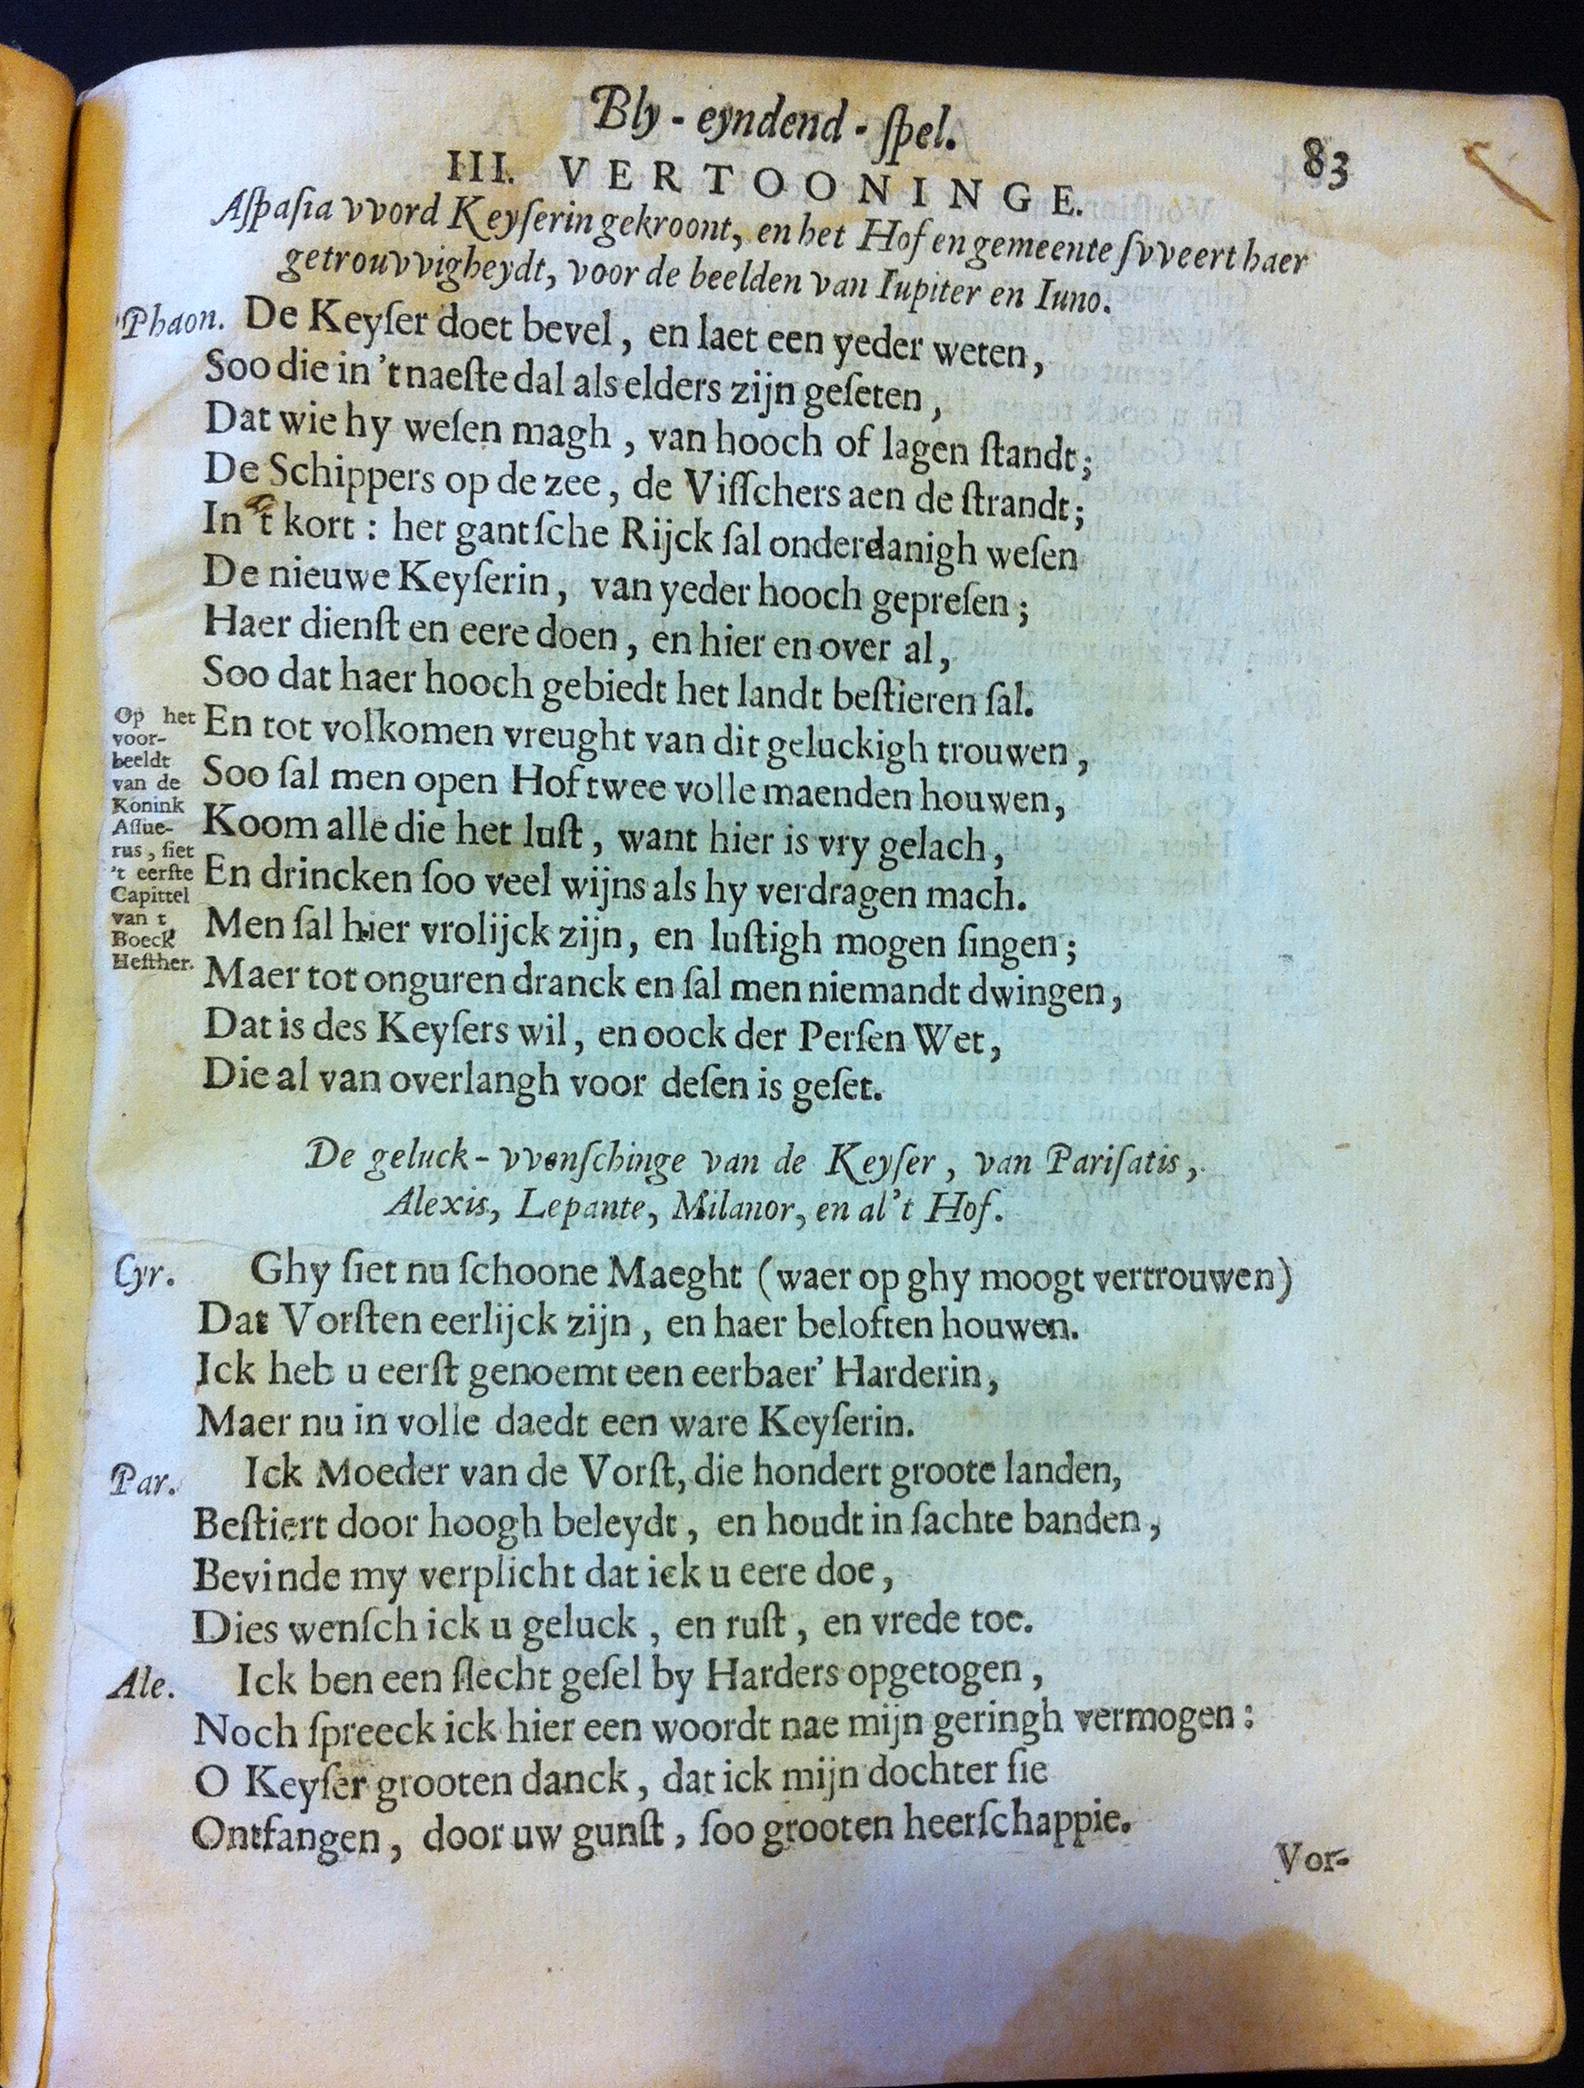 Bly-eyndend-ſpel.
83
III. VERTOONINGE.
Aſpaſia vvord Keyſerin gekroont, en het Hof en gemeente ſvveert haer
getrouvvigheydt, voor de beelden van Iupiter en Iuno.
Phaon. De Keyſer doet bevel, en laet een yeder weten,
Soo die in 't naeſte dal als elders zijn geſeten,
Dat wie hy weſen magh, van hooch of lagen ſtandt;
De Schippers op de zee, de Viſſchers aen de ſtrandt;
In 't kort: het gantſche Rijck ſal onderdanigh weſen
De nieuwe Keyſerin, van yeder hooch gepreſen;
Haer dienſt en eere doen, en hier en over al,
Soo dat haer hooch gebiedt het landt beſtieren ſal.
En tot volkomen vreught van dit geluckigh trouwen,
Soo ſal men open Hof twee volle maenden houwen,
Koom alle die het luſt, want hier is vry gelach,
En drincken ſoo veel wijns als hy verdragen mach.
Men ſal hier vrolijck zijn, en luſtigh mogen ſingen;
Maer tot onguren dranck en ſal men niemandt dwingen,
Dat is des Keyſers wil, en oock der Perſen Wet,
Die al van overlangh voor deſen is geſet.
Op het
voor-
beeldt
van de
Konink
Aſſue-
rus, ſiet
't eerſte
Capittel
van 't
Boeck
Heſther.
De geluck-vvenſchinge van de Keyſer, van Pariſatis,
Alexis, Lepante, Milanor, en al 't Hof.
Cyr. Ghy ſiet nu ſchoone Maeght (waer op ghy moogt vertrouwen)
Dat Vorſten eerlijck zijn, en haer beloften houwen.
Ick heb u eerſt genoemt een eerbaer' Harderin,
Maer nu in volle daedt een ware Keyſerin.
Par. Ick Moeder van de Vorſt, die hondert groote landen,
Beſtiert door hoogh beleydt, en houdt in ſachte banden,
Bevinde my verplicht dat ick u eere doe,
Dies wenſch ick u geluck, en ruſt, en vrede toe.
Ale. Ick ben een ſlecht geſel by Harders opgetogen,
Noch ſpreeck ick hier een woordt nae mijn geringh vermogen:
O Keyſer grooten danck, dat ick mijn dochter ſie
Ontfangen, door uw gunſt, ſoo grooten heerſchappie.
Vor-